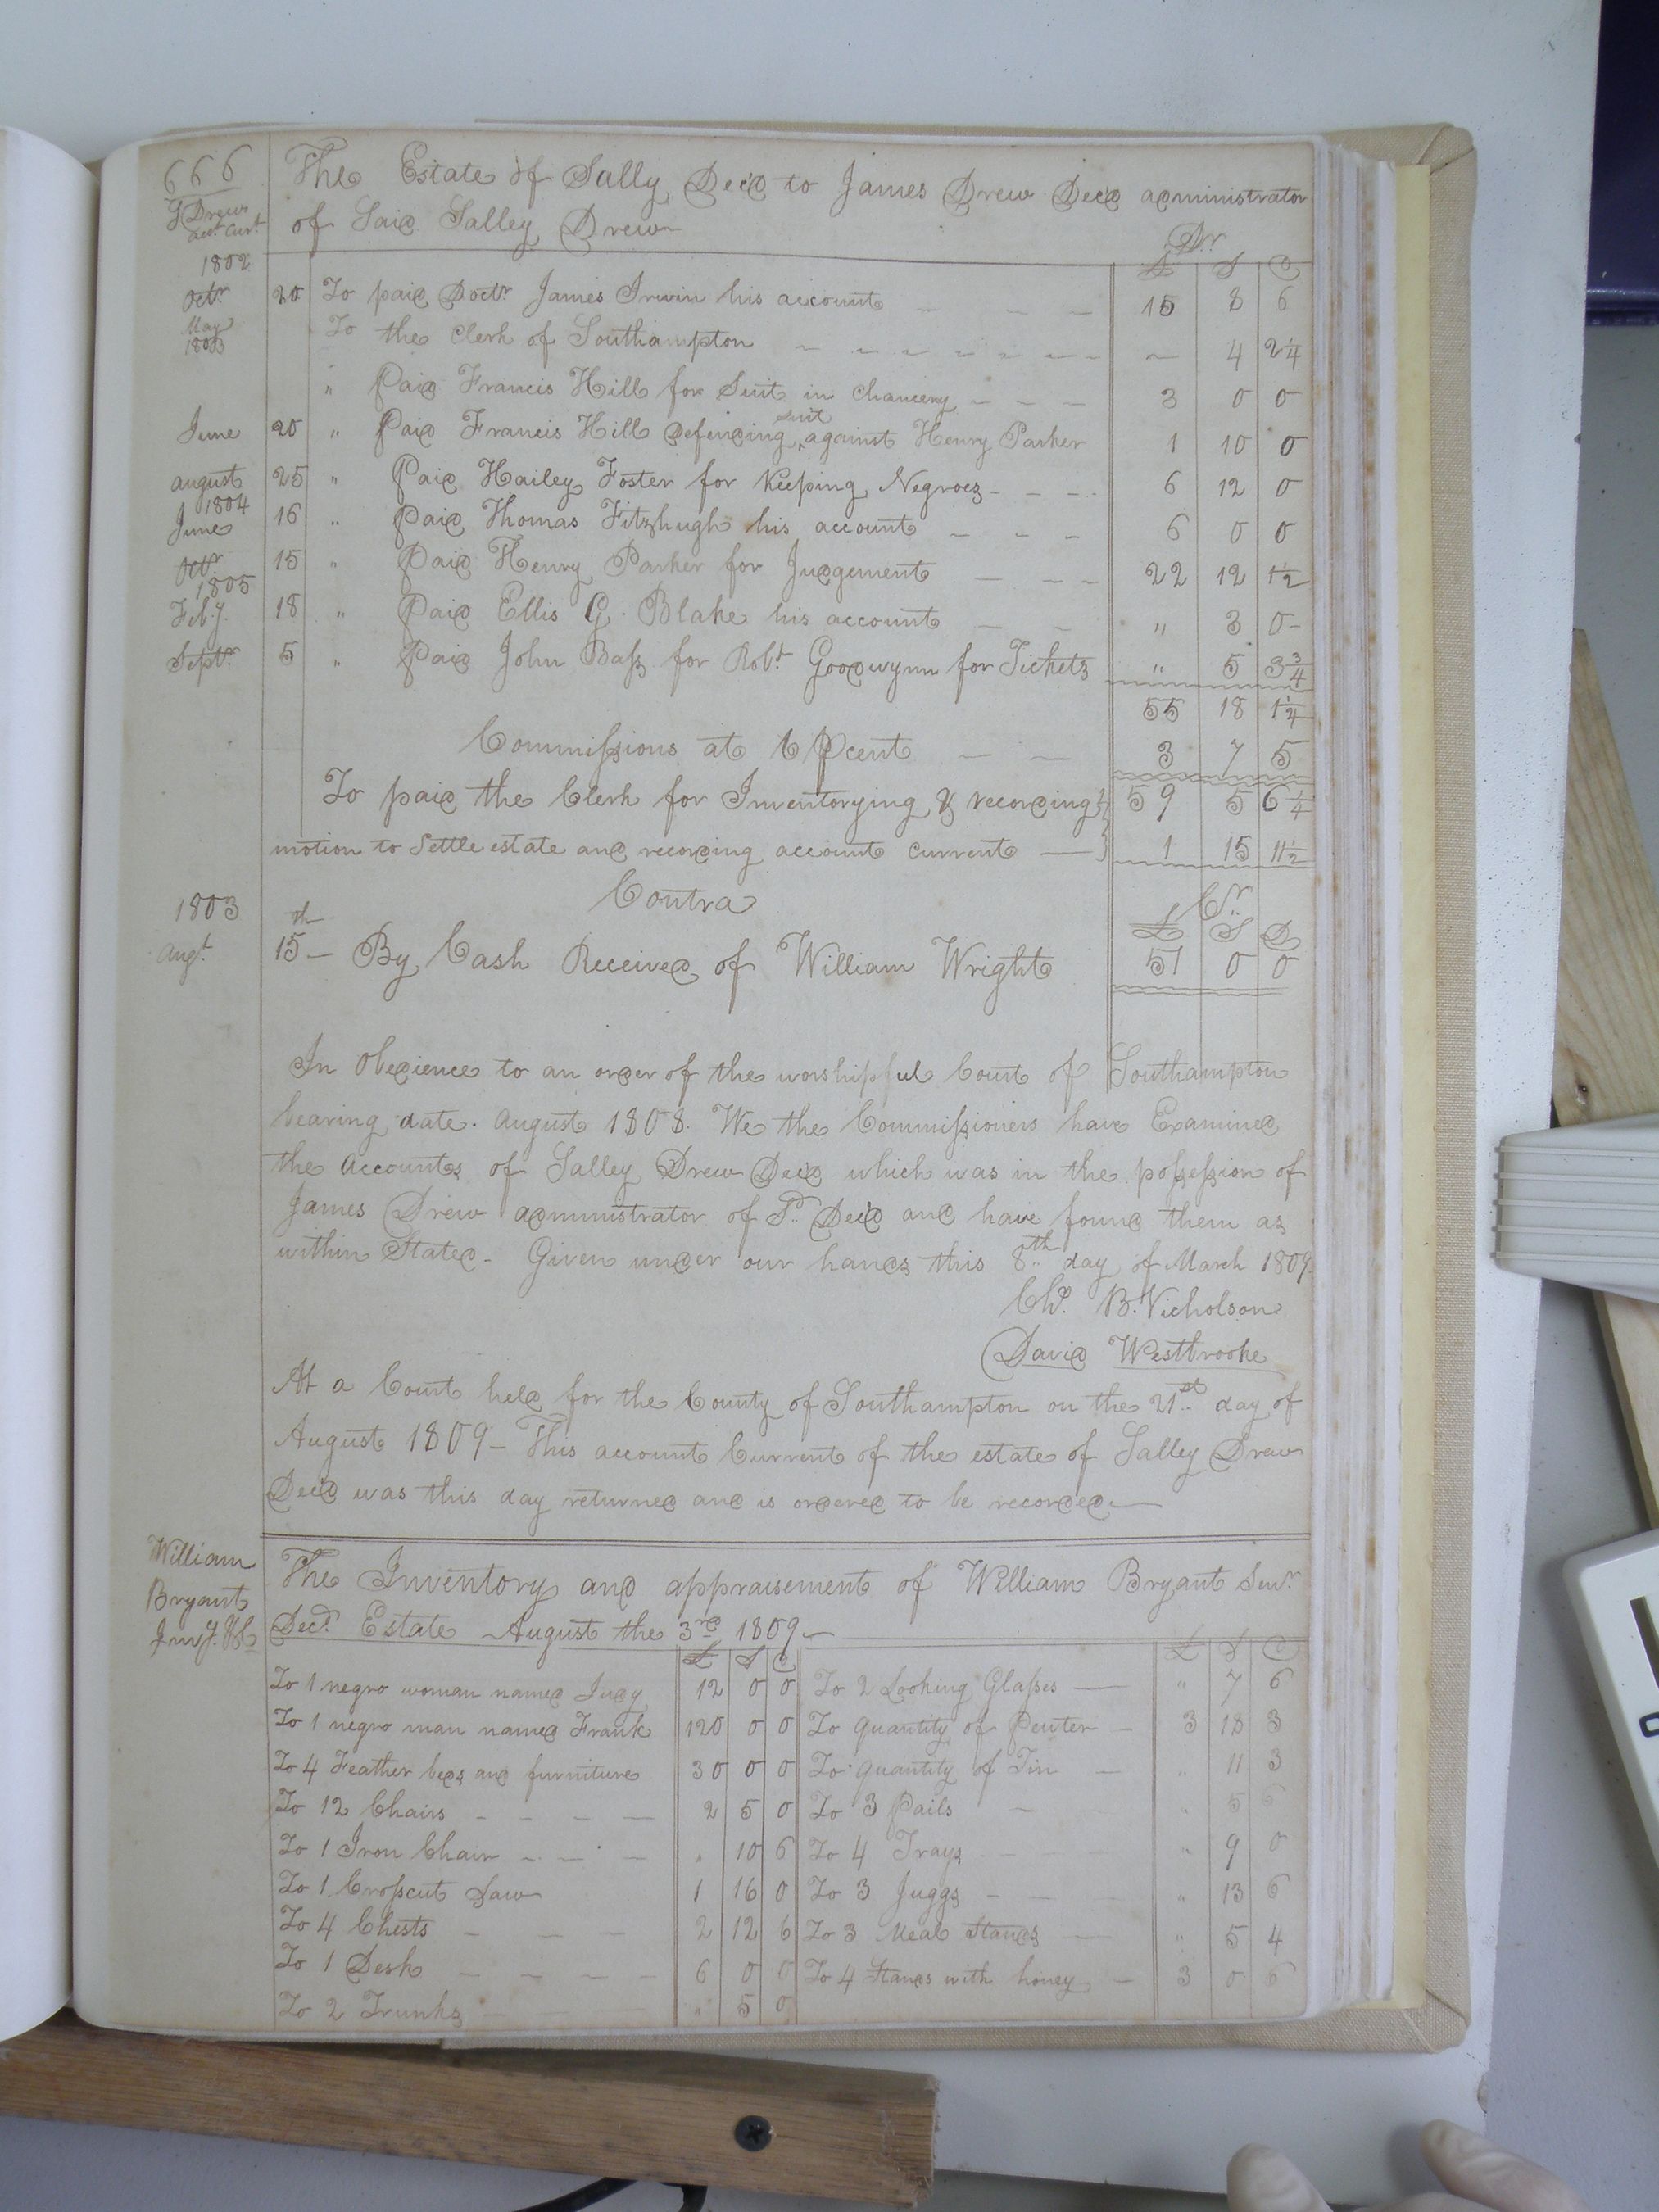 666
The Estate of Sally Decd to James Drew Decd administrator
of Said Salley Drew
Drew
acct Curt
Dr
£ S D
1802
Octr 20 To paid Doctr James Irwin his account 15 8 6
May 1803 To the Clerk of Southampton 4 2 1/4
" Paid Francis Hill for Suit in Chancery 3 0 0
June 20 " Paid Francis Hill defending suit against Henry Parker 1 10 0
august 25 " Paid Hailey Foster for Keeping Negroes 6 12 0
1804
June 16 " Paid Thomas Fitzhugh his account 6 0 0
Octr 15 " Paid Henry Parker for Judgement 22 12 1 1/2
1805
Feby. 18 " Paid Ellis G. Blake his account " 3 0
Septr 5 " Paid John Bass for Robt Goodwynn for Tickets " 5 3 3/4
55 18 1 1/4
Commissions at 6 Pcent 3 7 5
To paid the Clerk for Inventorying & recording 59 5 6 1/4
motion to Settle estate and recording account current 1 15 11 1/2
Contra Cr
£ S D
1803
Augt. 15th By Cash Received of William Wright 51 0 0
In Obedience to an order of the worshipful Court of Southampton
bearing date. August 1808. We the Commissioners have Examined
the accounts of Salley Drew Decd which was in the possession of
James Drew administrator of Sd. Decd and have found them as
within Stated. Given under our hands this 8th day of March 1809
Chs. B. Nicholson
David Westbrooke
At a Court held for the County of Southampton on the 21st day of
August 1809 - This account Current of the estate of Salley Drew
Decd was this day returned and is ordered to be recorded
William
Bryant
The Inventory and appraisement of William Bryant Senr
Decd. Estate August the 3rd 1809
£ S D £ S D
To 1 negro woman named Judy 12 0 0 To 2 Looking Glasses " 7 6
To 1 negro man named Frank 120 0 0 To quantity of Pewter 3 18 3
To 4 Feather beds and furniture 30 0 0 To quantity of Tin " 11 3
To 12 Chairs 2 5 0 To 3 Pails " 5 6
To 1 Iron Chair " 10 6 To 4 Trays " 9 0
To 1 Crosscut Saw 1 16 0 To 3 Juggs " 13 6
To 4 Chests 2 12 6 To 3 Meal Stands " 5 4
To 1 Desk 6 0 0 To 4 Stands with honey 3 0 6
To 2 Trunks " 5 0